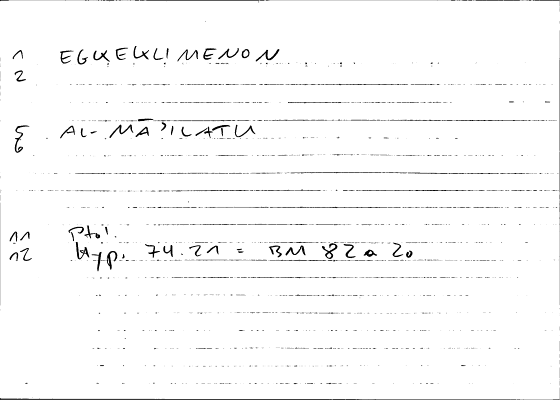 1 EGKEKLIMENON
2
5 AL-MĀʾILATU
6
11 Ptol.
12 Hyp. 74.21 = BM 82 a 20